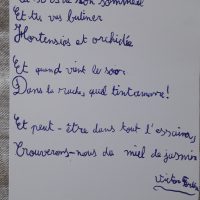 Et tu vas butiner
Hortensias et orchidée
Et quand vient le soir
Dans la ruche, quel tintamarre !
Et peut-être dans tout l'essaim,
Trouverons-nous du miel de jasmin